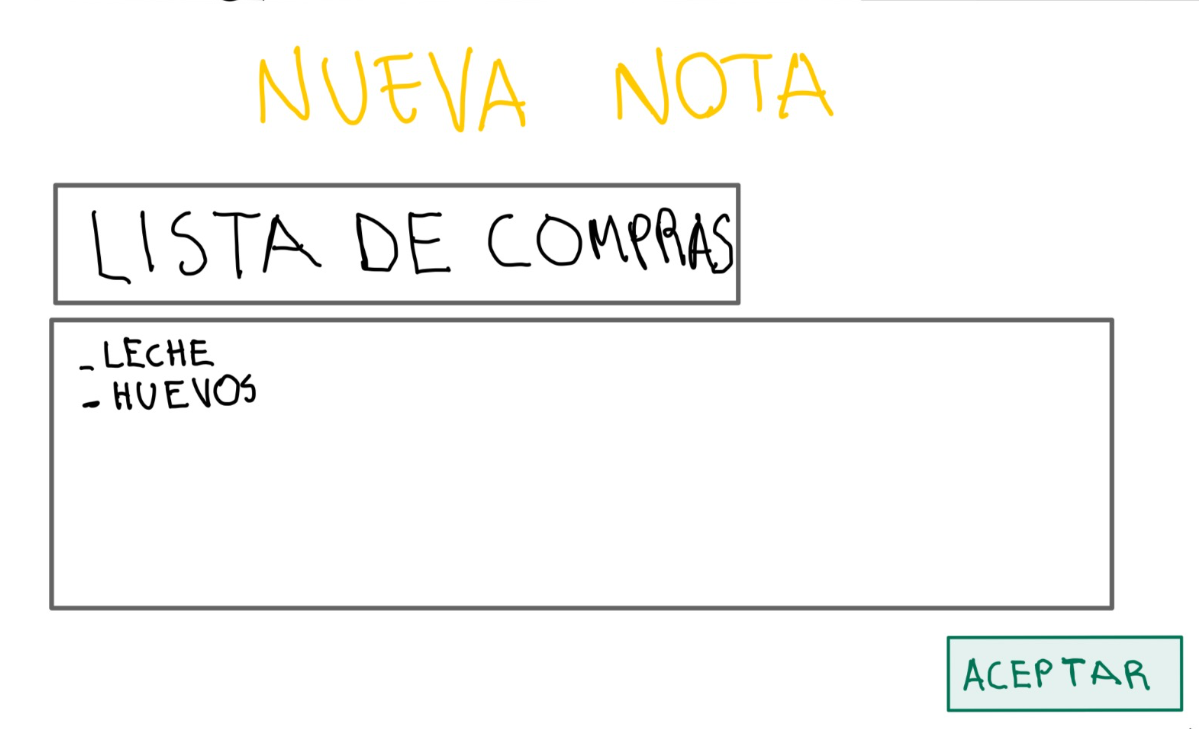 NUEVA NOTA
LISTA DE COMPRAS
- LECHE
- HUEVOS
ACEPTAR